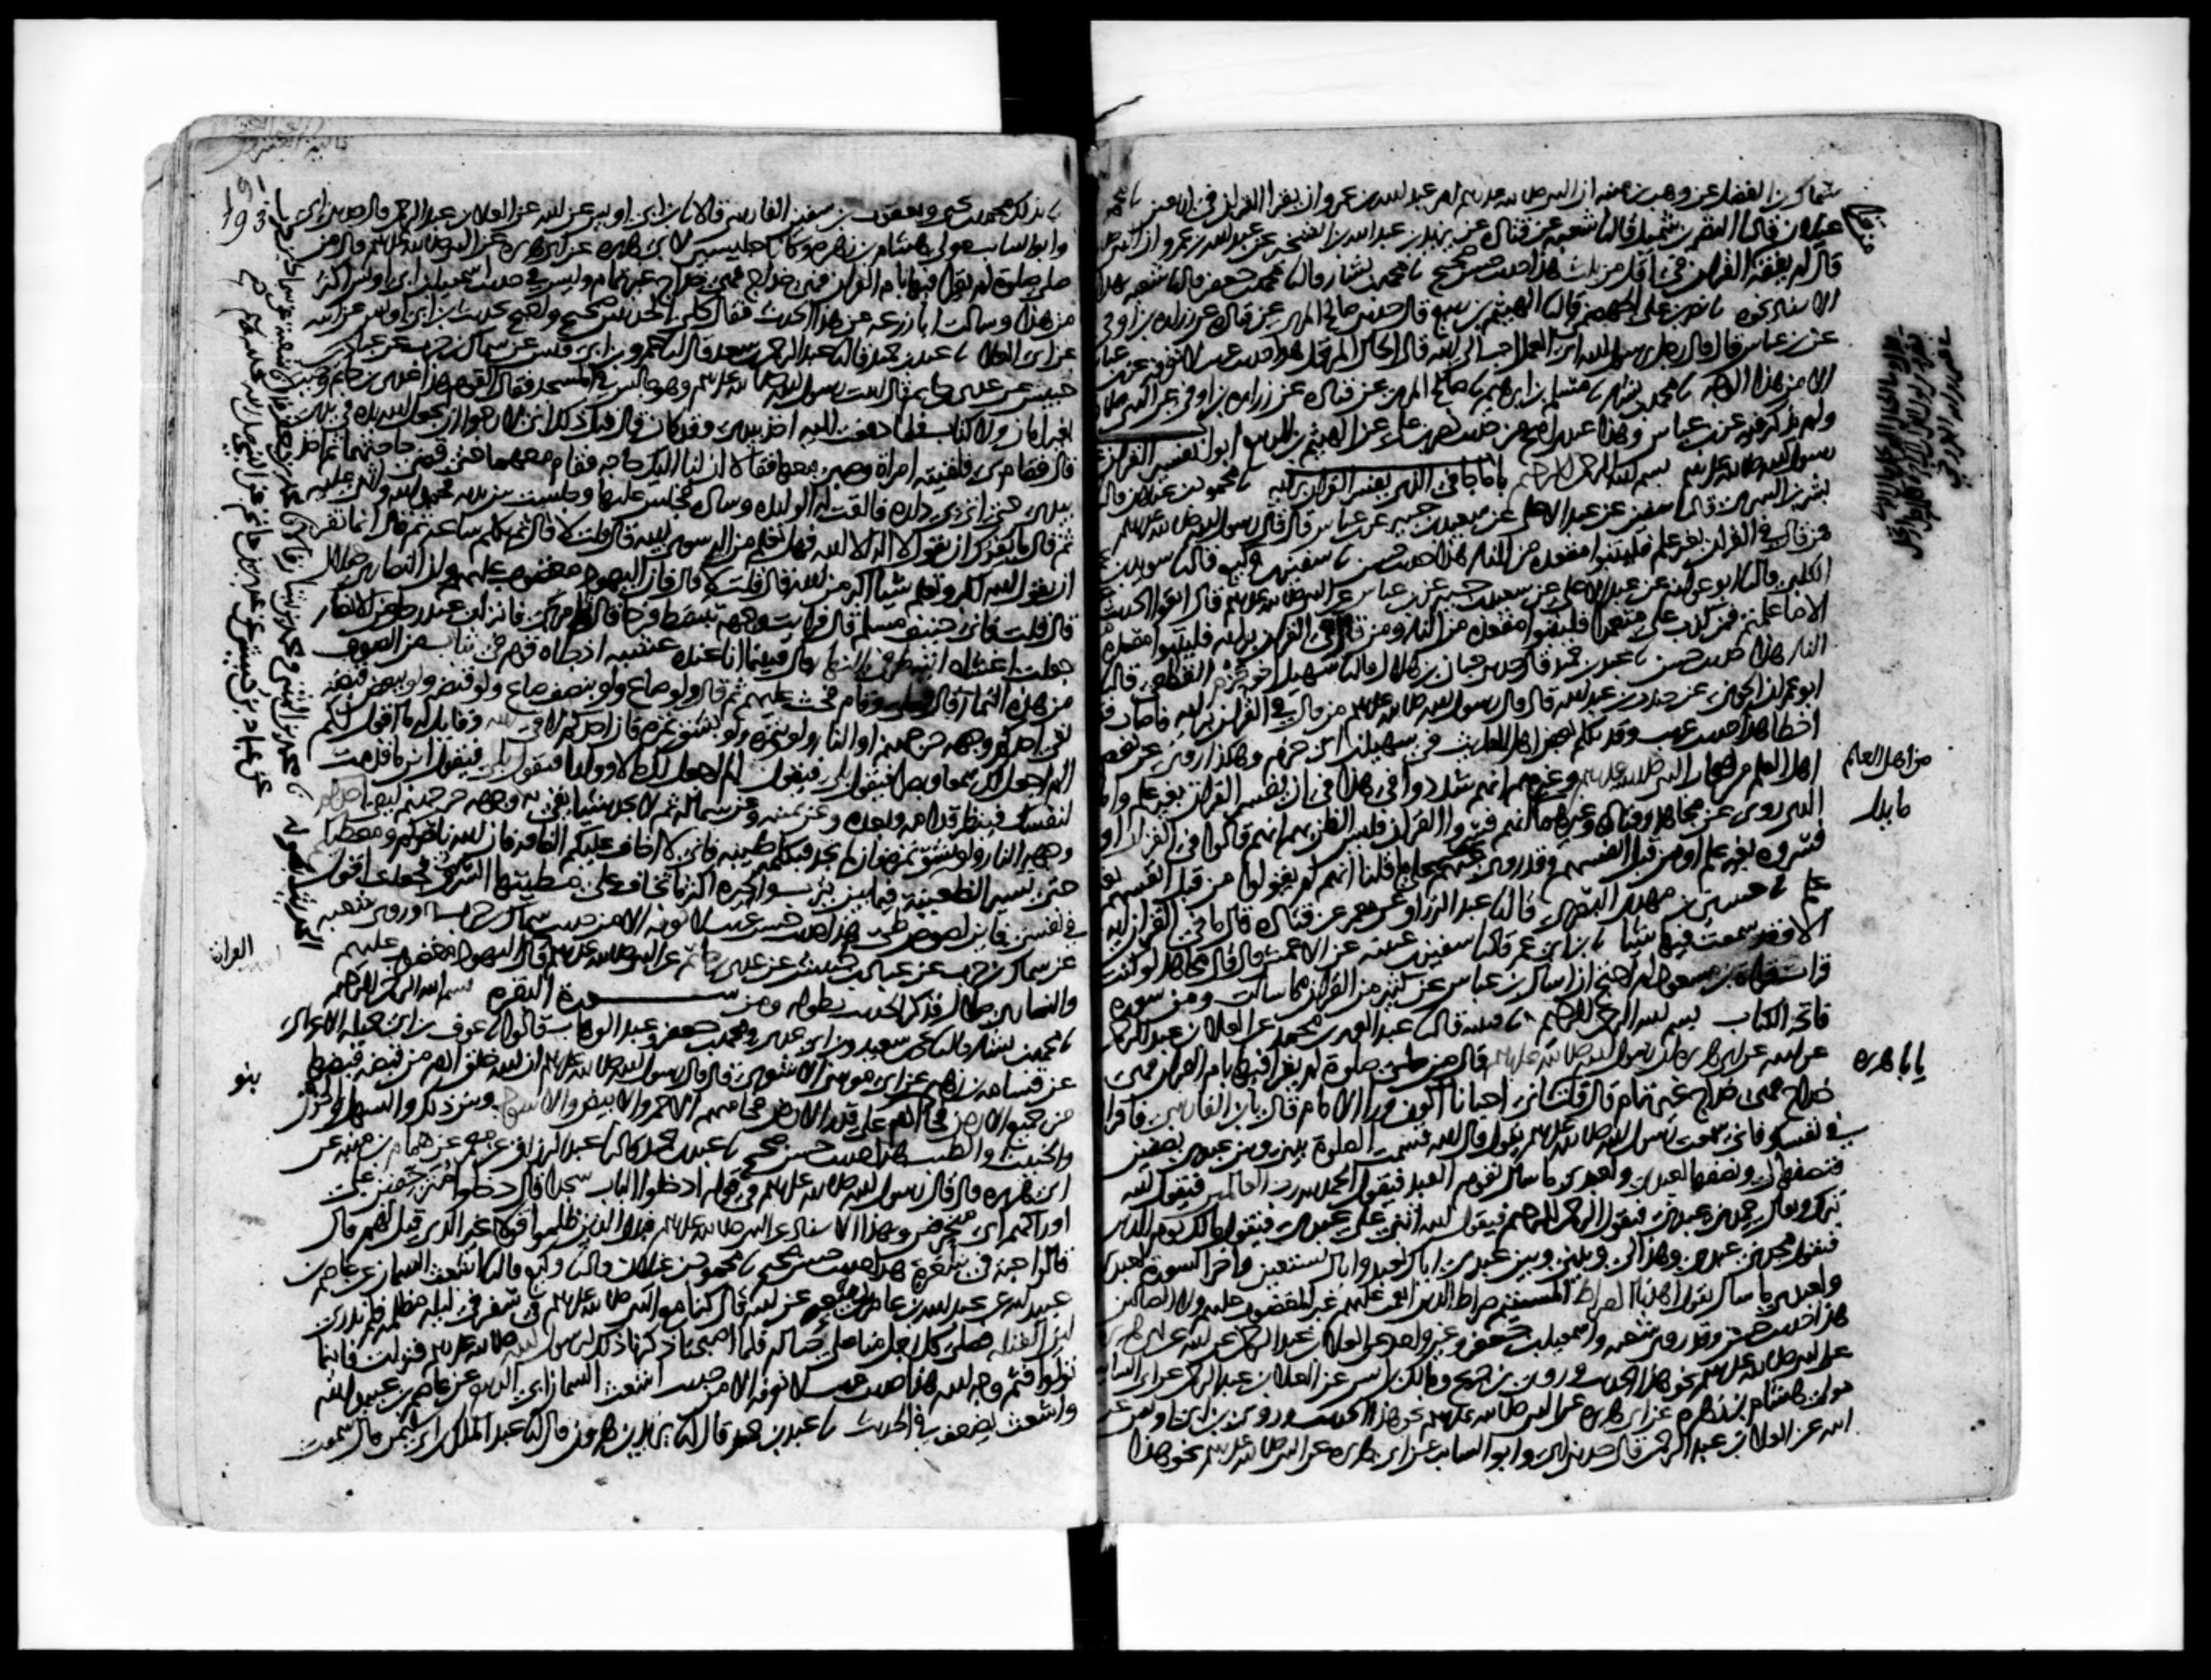 سماك بن الفضل عن وهب بن منبه ان النبي صلى الله عليه وسلم امر عبد الله بن عمرو ان يقرا القران في اربعين
غيلان قال نا النضر بن شميل قال نا شعبة عن قتادة عن يزيد بن عبد الله بن الشخير عن عبد الله بن عمرو ان النبي
قال لم يفقه من قرا القران في اقل من ثلث هذا حديث حسن صحيح نا محمد بن بشار قال نا محمد بن جعفر قال نا شعبة بهذا
الاسناد نحوه نا نصر بن علي الجهضمي قال نا الهيثم بن الربيع قال حدثني صالح المري عن قتادة عن زرارة بن اوفى
عن ابن عباس قال قال رجل يرسول الله اي العمل احب الى الله قال الحال المرتحل هذا حديث غريب لا نعرفه عن ابن عباس
الا من هذا الوجه نا محمد بن بشار نا مسلم بن ابراهيم نا صالح المري عن قتادة عن زرارة بن اوفى عن النبي صلى
ولم يذكر فيه عن ابن عباس وهذا عندي اصح من حديث نصر بن علي عن الهيثم بن الربيع ابواب تفسير القران
رسول الله صلى الله عليه وسلم بسم الله الرحمن الرحيم باب ما جا في الذي يفسر القران برايه نا محمود بن غيلان قال
بشر بن السري قال نا سفين عن عبد الاعلى عن سعيد بن جبير عن ابن عباس قال قال رسول الله صلى الله عليه وسلم
من قال في القران بغير علم فليتبوا مقعده من النار هذا حديث حسن نا سفين بن وكيع قال نا سويد بن
الكلبي قال نا ابو عوانة عن عبد الاعلى عن سعيد بن جبير عن ابن عباس عن النبي صلى الله عليه وسلم قال اتقوا الحديث
الا ما علمتم فمن كذب علي متعمدا فليتبوا مقعده من النار ومن قال في القران برايه فليتبوا مقعده
النار هذا حديث حسن نا عبد بن حميد قال حدثني حبان بن هلال قال نا سهيل اخو حزم القطعي قال نا
ابو عمران الجوني عن جندب بن عبد الله قال قال رسول الله صلى الله عليه وسلم من قال في القران برايه فاصاب فقد
اخطا هذا حديث غريب وقد تكلم بعض اهل الحديث في سهيل بن ابي حزم وهكذا روي عن بعض
اهل العلم من اصحاب النبي صلى الله عليه وسلم وغيرهم انهم شددوا في هذا في ان يفسر القران بغير علم واما
الذي روي عن مجاهد وقتادة وغيرهما انهم فسروا القران فليس الظن بهم انهم قالوا في القران او
فسروه بغير علم او من قبل انفسهم وقد روي عنهم ما يدل على ما قلنا انهم لم يقولوا من قبل انفسهم بغير
علم نا حسين بن مهدي البصري قال نا عبد الرزاق عن معمر عن قتادة قال ما في القران اية
الا وقد سمعت فيها شيا نا ابن ابي عمر قال نا سفين بن عيينة عن الاعمش قال قال مجاهد لو كنت
قرات قراة ابن مسعود لم احتج ان اسال ابن عباس عن كثير من القران مما سالت ومن سورة
فاتحة الكتاب بسم الله الرحمن الرحيم نا قتيبة قال نا عبد العزيز بن محمد عن العلا بن عبد الرحمن
عن ابيه عن ابي هريرة ان رسول الله صلى الله عليه وسلم قال من صلى صلوة لم يقرا فيها بام القران فهي
خداج فهي خداج غير تمام قال قلت اني احيانا اكون ورا الامام قال يا بن الفارسي فاقراها
في نفسك فاني سمعت رسول الله صلى الله عليه وسلم يقول قال الله قسمت الصلوة بيني وبين عبدي نصفين
فنصفها لي ونصفها لعبدي ولعبدي ما سال يقوم العبد فيقول الحمد لله رب العالمين فيقول الله
تبرك وتعالى حمدني عبدي فيقول الرحمن الرحيم فيقول الله اثنى علي عبدي فيقول مالك يوم الدين
فيقول مجدني عبدي وهذا لي وبيني وبين عبدي اياك نعبد واياك نستعين واخر السورة لعبدي
ولعبدي ما سال يقول اهدنا الصراط المستقيم صراط الذين انعمت عليهم غير المغضوب عليهم ولا الضالين
هذا حديث حسن وقد روى شعبة واسمعيل بن جعفر وغير واحد عن العلا بن عبد الرحمن عن ابيه عن ابي هريرة
عن النبي صلى الله عليه وسلم نحو هذا الحديث وروى ابن جريج ومالك بن انس عن العلا بن عبد الرحمن عن ابي السايب
مولى هشام بن زهرة عن ابي هريرة عن النبي صلى الله عليه وسلم نحو هذا الحديث وروى ابن ابي اويس عن
ابيه عن العلا بن عبد الرحمن قال حدثني ابي وابو السايب عن ابي هريرة عن النبي صلى الله عليه وسلم نحو هذا
من اهل العلم
ما يدل
يا با هريرة
193
نا بذلك محمد بن يحيى ويعقوب بن سفين الفارسي قالا نا ابن ابي اويس عن ابيه عن العلا بن عبد الرحمن قال حدثني ابي
وابو السايب مولى هشام بن زهرة وكانا جليسين لابي هريرة عن ابي هريرة عن النبي صلى الله عليه وسلم قال من
صلى صلوة لم يقرا فيها بام القران فهي خداج فهي خداج غير تمام وليس في حديث اسمعيل بن ابي اويس اكثر
من هذا وسالت ابا زرعة عن هذا الحديث فقال كلا الحديثين صحيح واحتج بحديث ابن ابي اويس عن ابيه
عن العلا نا عبد بن حميد قال نا عبد الرحمن بن سعد قال نا عمرو بن ابي قيس عن سماك بن حرب عن عباد بن
حبيش عن عدي بن حاتم قال اتيت رسول الله صلى الله عليه وسلم وهو جالس في المسجد فقال القوم هذا عدي بن حاتم وجيت
بغير امان ولا كتاب فلما دفعت اليه اخذ بيدي وقد كان قال قبل ذلك اني لارجو ان يجعل الله يده في يدي
قال فقام بي فلقيته امراة وصبي معها فقالا ان لنا اليك حاجة فقام معهما حتى قضى حاجتهما ثم اخذ
بيدي حتى اتى بي داره فالقت له الوليدة وسادة فجلس عليها وجلست بين يديه فحمد الله واثنى عليه
ثم قال ما يفرك ان تقول لا اله الا الله فهل تعلم من اله سوى الله قال قلت لا قال ثم تكلم ساعة ثم قال انما تفر
ان تقول الله اكبر وتعلم شيا اكبر من الله قال قلت لا قال فان اليهود مغضوب عليهم وان النصارى ضلال
قال قلت فاني حنيف مسلم قال فرايت وجهه تبسط فرحا قال ثم امر بي فانزلت عند رجل من الانصار
جعلت اغشاه اتيه طرفي النهار قال فبينما انا عنده عشية اذ جاه قوم في ثياب من الصوف
من هذه النمار قال فصلى وقام فحث عليهم ثم قال ولو صاع ولو بنصف صاع ولو قبضة ولو ببعض قبضة
يقي احدكم وجهه حر جهنم او النار ولو بتمرة ولو بشق تمرة فان احدكم لاقي الله وقايل له ما اقول لكم
الم اجعل لك سمعا وبصرا فيقول بلى فيقول الم اجعل لك مالا وولدا فيقول بلى فيقول اين ما قدمت
لنفسك فينظر قدامه وبعده وعن يمينه وعن شماله ثم لا يجد شيا يقي به وجهه حر جهنم ليق احدكم
وجهه النار ولو بشق تمرة فان لم يجد فبكلمة طيبة فاني لا اخاف عليكم الفاقة فان الله ناصركم ومعطيكم
حتى تسير الظعينة فيما بين يثرب والحيرة اكثر ما تخاف على مطيتها السرق فجعلت اقول
في نفسي فاين لصوص طي هذا حديث حسن غريب لا نعرفه الا من حديث سماك بن حرب وروى شعبة
عن سماك بن حرب عن عباد بن حبيش عن عدي بن حاتم عن النبي صلى الله عليه وسلم قال اليهود مغضوب عليهم
والنصارى ضلال فذكر الحديث بطوله ومن سورة البقرة بسم الله الرحمن الرحيم
نا محمد بن بشار قال نا يحيى بن سعيد وابن ابي عدي ومحمد بن جعفر وعبد الوهاب قالوا نا عوف بن ابي جميلة الاعرابي
عن قسامة بن زهير عن ابي موسى الاشعري قال قال رسول الله صلى الله عليه وسلم ان الله خلق ادم من قبضة قبضها
من جميع الارض فجا بنو ادم على قدر الارض فجا منهم الاحمر والابيض والاسود وبين ذلك والسهل والحزن
والخبيث والطيب هذا حديث حسن صحيح نا عبد بن حميد قال نا عبد الرزاق عن معمر عن همام بن منبه عن
ابي هريرة قال قال رسول الله صلى الله عليه وسلم في قوله ادخلوا الباب سجدا قال دخلوا متزحفين على
اوراكهم اي منحرفين وبهذا الاسناد عن النبي صلى الله عليه وسلم فبدل الذين ظلموا قولا غير الذي قيل لهم قال
قالوا حبة في شعرة هذا حديث حسن صحيح نا محمود بن غيلان قال نا وكيع قال نا اشعث السمان عن عاصم بن
عبيد الله عن عبد الله بن عامر بن ربيعة عن ابيه قال كنا مع النبي صلى الله عليه وسلم في سفر في ليلة مظلمة فلم ندر
اين القبلة فصلى كل رجل منا على حياله فلما اصبحنا ذكرنا ذلك لرسول الله صلى الله عليه وسلم فنزلت فاينما
تولوا فثم وجه الله هذا حديث غريب لا نعرفه الا من حديث اشعث السمان ابي الربيع عن عاصم بن عبيد الله
واشعث يضعف في الحديث نا عبد بن حميد قال نا يزيد بن هرون قال نا عبد الملك بن ابي سليمن قال سمعت
بنو
نا محمد بن المثنى ومحمد بن بشار قالا نا محمد بن جعفر قال نا شعبة عن سماك بن حرب
عن عباد بن حبيش عن عدي بن حاتم عن النبي صلى الله عليه وسلم